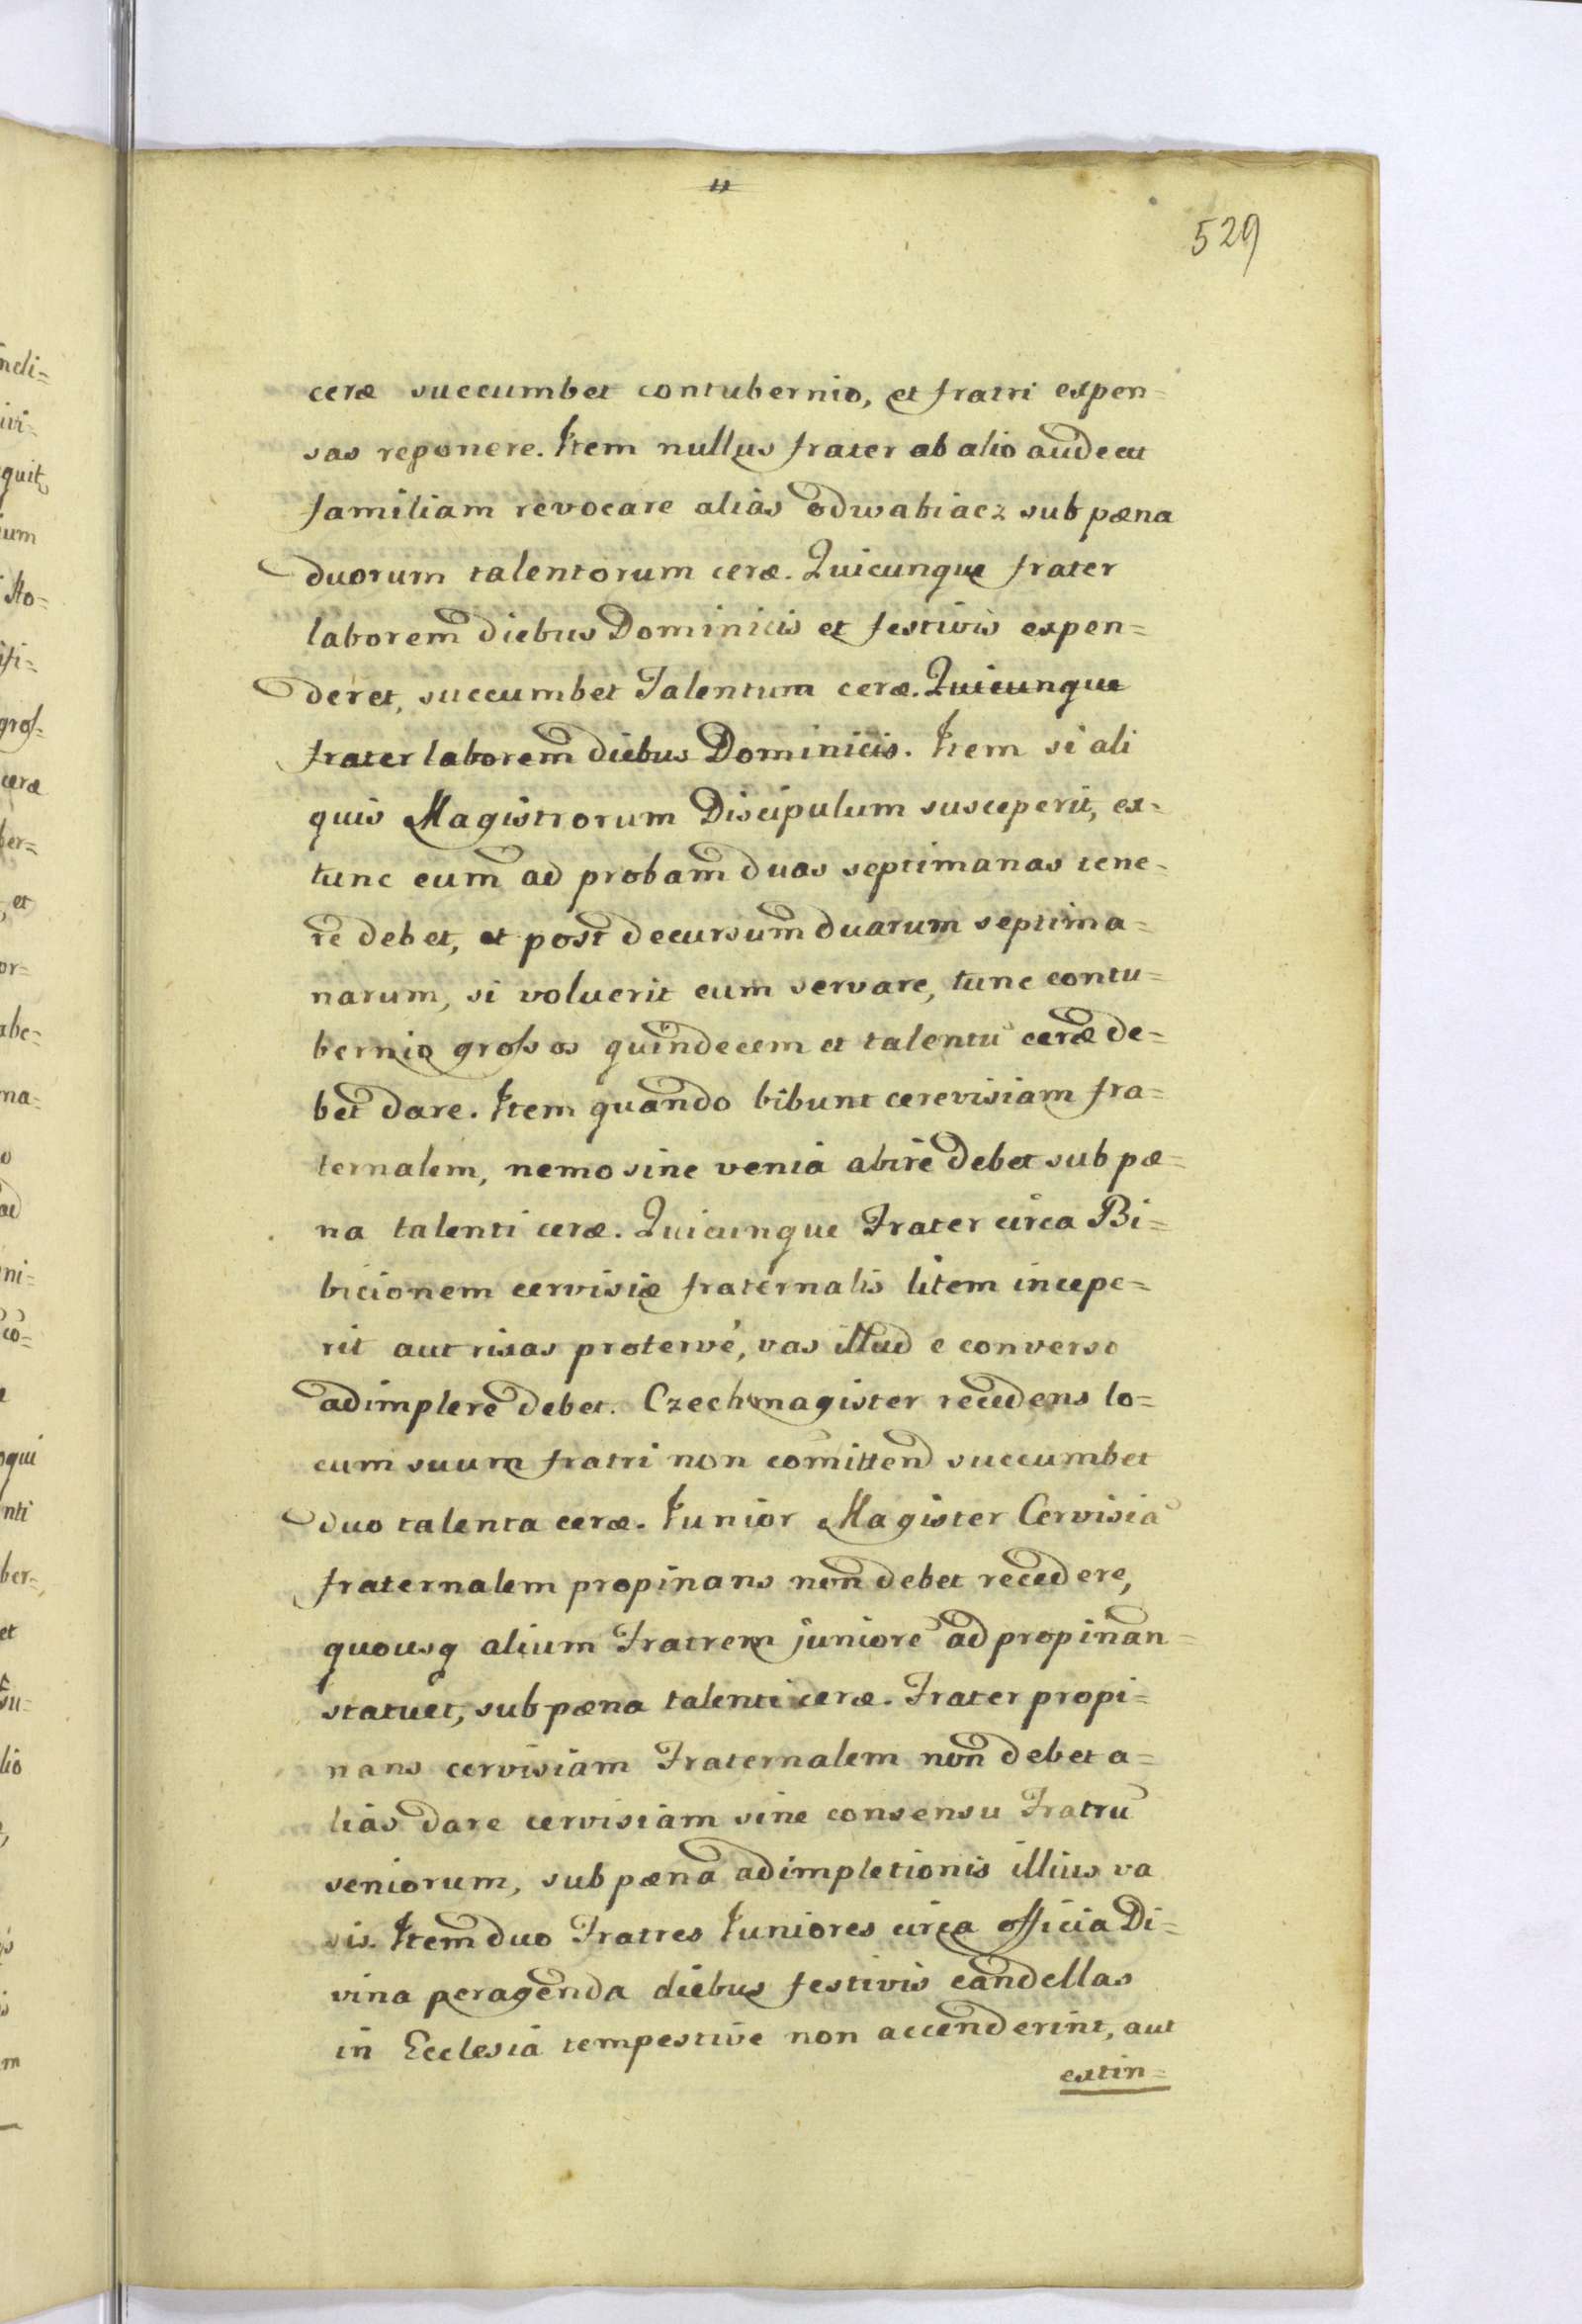 11
529
ceræ succumbet contubernio, et fratri expen=
sas reponere. Item nullus frater ab alio audeat
familiam revocare alias odwabiacz sub pæna
duorum talentorum ceræ. Quicunque frater
laborem diebus Dominicis et festivis expen=
deret, succumbet Talentum ceræ. Quicunque
frater laborem diebus Dominicis. Item si ali
quis Magistrorum Discipulum susceperit, ex=
tunc eum ad probam duas septimanas tene=
re debet, et post decursum duarum septima=
narum, si voluerit eum servare, tunc contu=
bernio grossos quindecem et talentū ceræ de=
bet dare. Item quando bibunt cerevisiam fra=
ternalem, nemo sine venia abire debet sub pæ=
na talenti ceræ. Quicunque Frater circa Bi=
bicionem cervisiæ fraternalis litem incepe=
rit aut rixas protervè, vas illud e converso
adimplere debet. Czechmagister recedens lo=
cum suum fratri non comittend succumbet
duo talenta ceræ. Junior Magister Cervisiā
fraternalem propinans non debet recedere,
quousq alium Fratrem juniorē ad propinan=
statuet, sub pæna talenti ceræ. Frater propi=
nans cervisiam Fraternalem non debet a=
lias dare cervisiam sine consensu Fratrū
seniorum, sub pæna adimpletionis illius va
sis. Item duo Fratres Juniores circa officia Di=
vina peragenda diebus festivis candellas
in Ecclesia tempestive non accenderint, aut
extin=